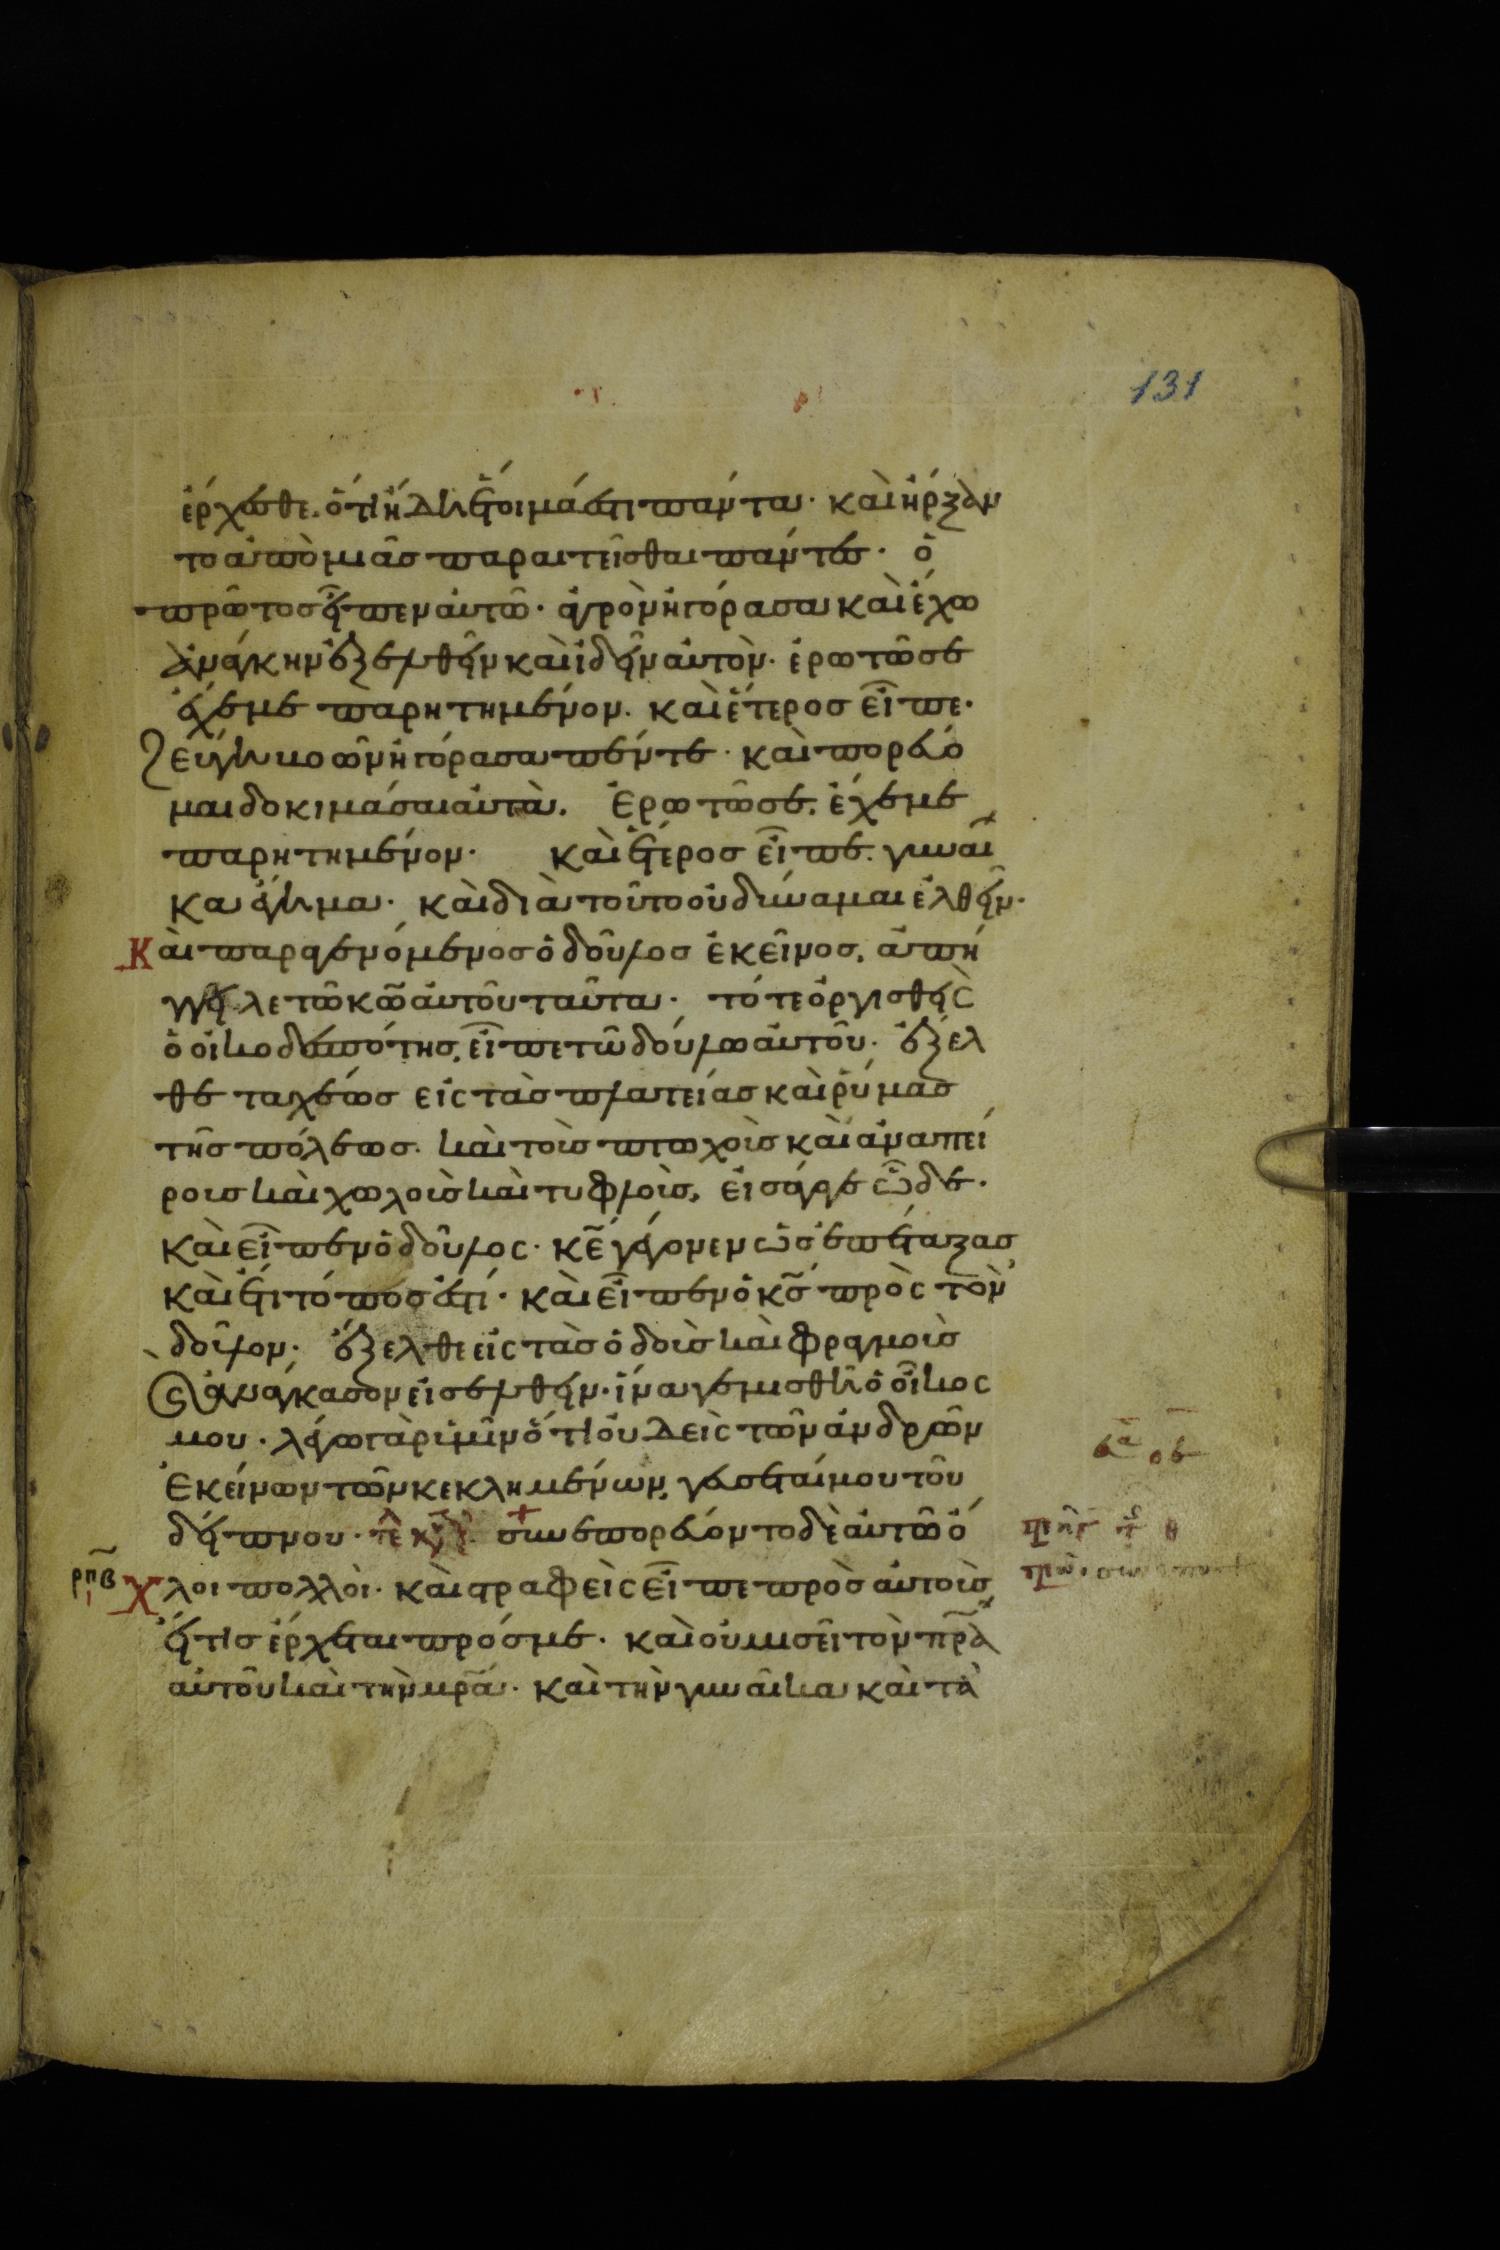 131
ἔρχεσθε. ὅτι ἤδη ἕτοιμά ἐστι πάντα· καὶ ἤρξαν
το ἀπὸ μιᾶς παραιτεῖσθαι πάντες· ὁ
πρῶτος εἶπεν αὐτῶ· ἀγρὸν ἠγόρασα καὶ ἔχω
ἀνάγκην ἐξελθεῖν καὶ ἰδεῖν αὐτὸν· ἐρωτῶ σε
ἔχε με παρητημένον. καὶ ἕτερος εἶπε·
ζεύγη βοῶν ἠγόρασα πέντε· καὶ πορεύο
μαι δοκιμάσαι αὐτὰ. ἐρωτῶ σε. ἔχε με
παρητημένον· καὶ ἕτερος εἶπε. γυναῖ
κα ἔγημα· καὶ διὰ τοῦτο οὐ δύναμαι ἐλθεῖν·
Καὶ παραγενόμενος ὁ δοῦλος ἐκεῖνος, ἀπή
γγειλε τῶ κῶ αὐτοῦ ταῦτα· τότε ὀργισθεὶς
ὁ οἰκοδεσπότης, εἶπε τῶ δούλω αὐτοῦ· ἔξελ
θε ταχέως εἰς τὰς πλατείας καὶ ῥύμας
τῆς πόλεως. καὶ τοὺς πτωχοὺς καὶ ἀναπεί
ρους καὶ χωλοὺς καὶ τυφλοὺς, εἰσάγαγε ὧδε·
καὶ εἶπεν ὁ δοῦλος· κε γέγονεν ὡς ἐπέταξας
καὶ ἔτι τόπος ἐστί· καὶ εἶπεν ὁ κς πρὸς τὸν
δοῦλον· ἔξελθε εἰς τὰς ὁδοὺς καὶ φραγμοὺς
ϛ ἀνάγκασον εἰσελθεῖν· ἵνα γεμισθῆ ὁ οἶκος
μου· λέγω γὰρ ὑμῖν ὅτι οὐδεὶς τῶν ἀνδρῶν
ἐκείνων τῶν κεκλημένων, γεύσεταί μου τοῦ
δείπνου· συνεπορεύοντο δὲ αὐτῶ ὄ
ρπβ χλοι πολλοὶ· καὶ στραφεὶς εἶπε πρὸς αὐτοὺς
εἴ τις ἔρχεται πρός με· καὶ οὐ μισεῖ τὸν πρα
αὐτοῦ καὶ τὴν μρα· καὶ τὴν γυναῖκα καὶ τὰ